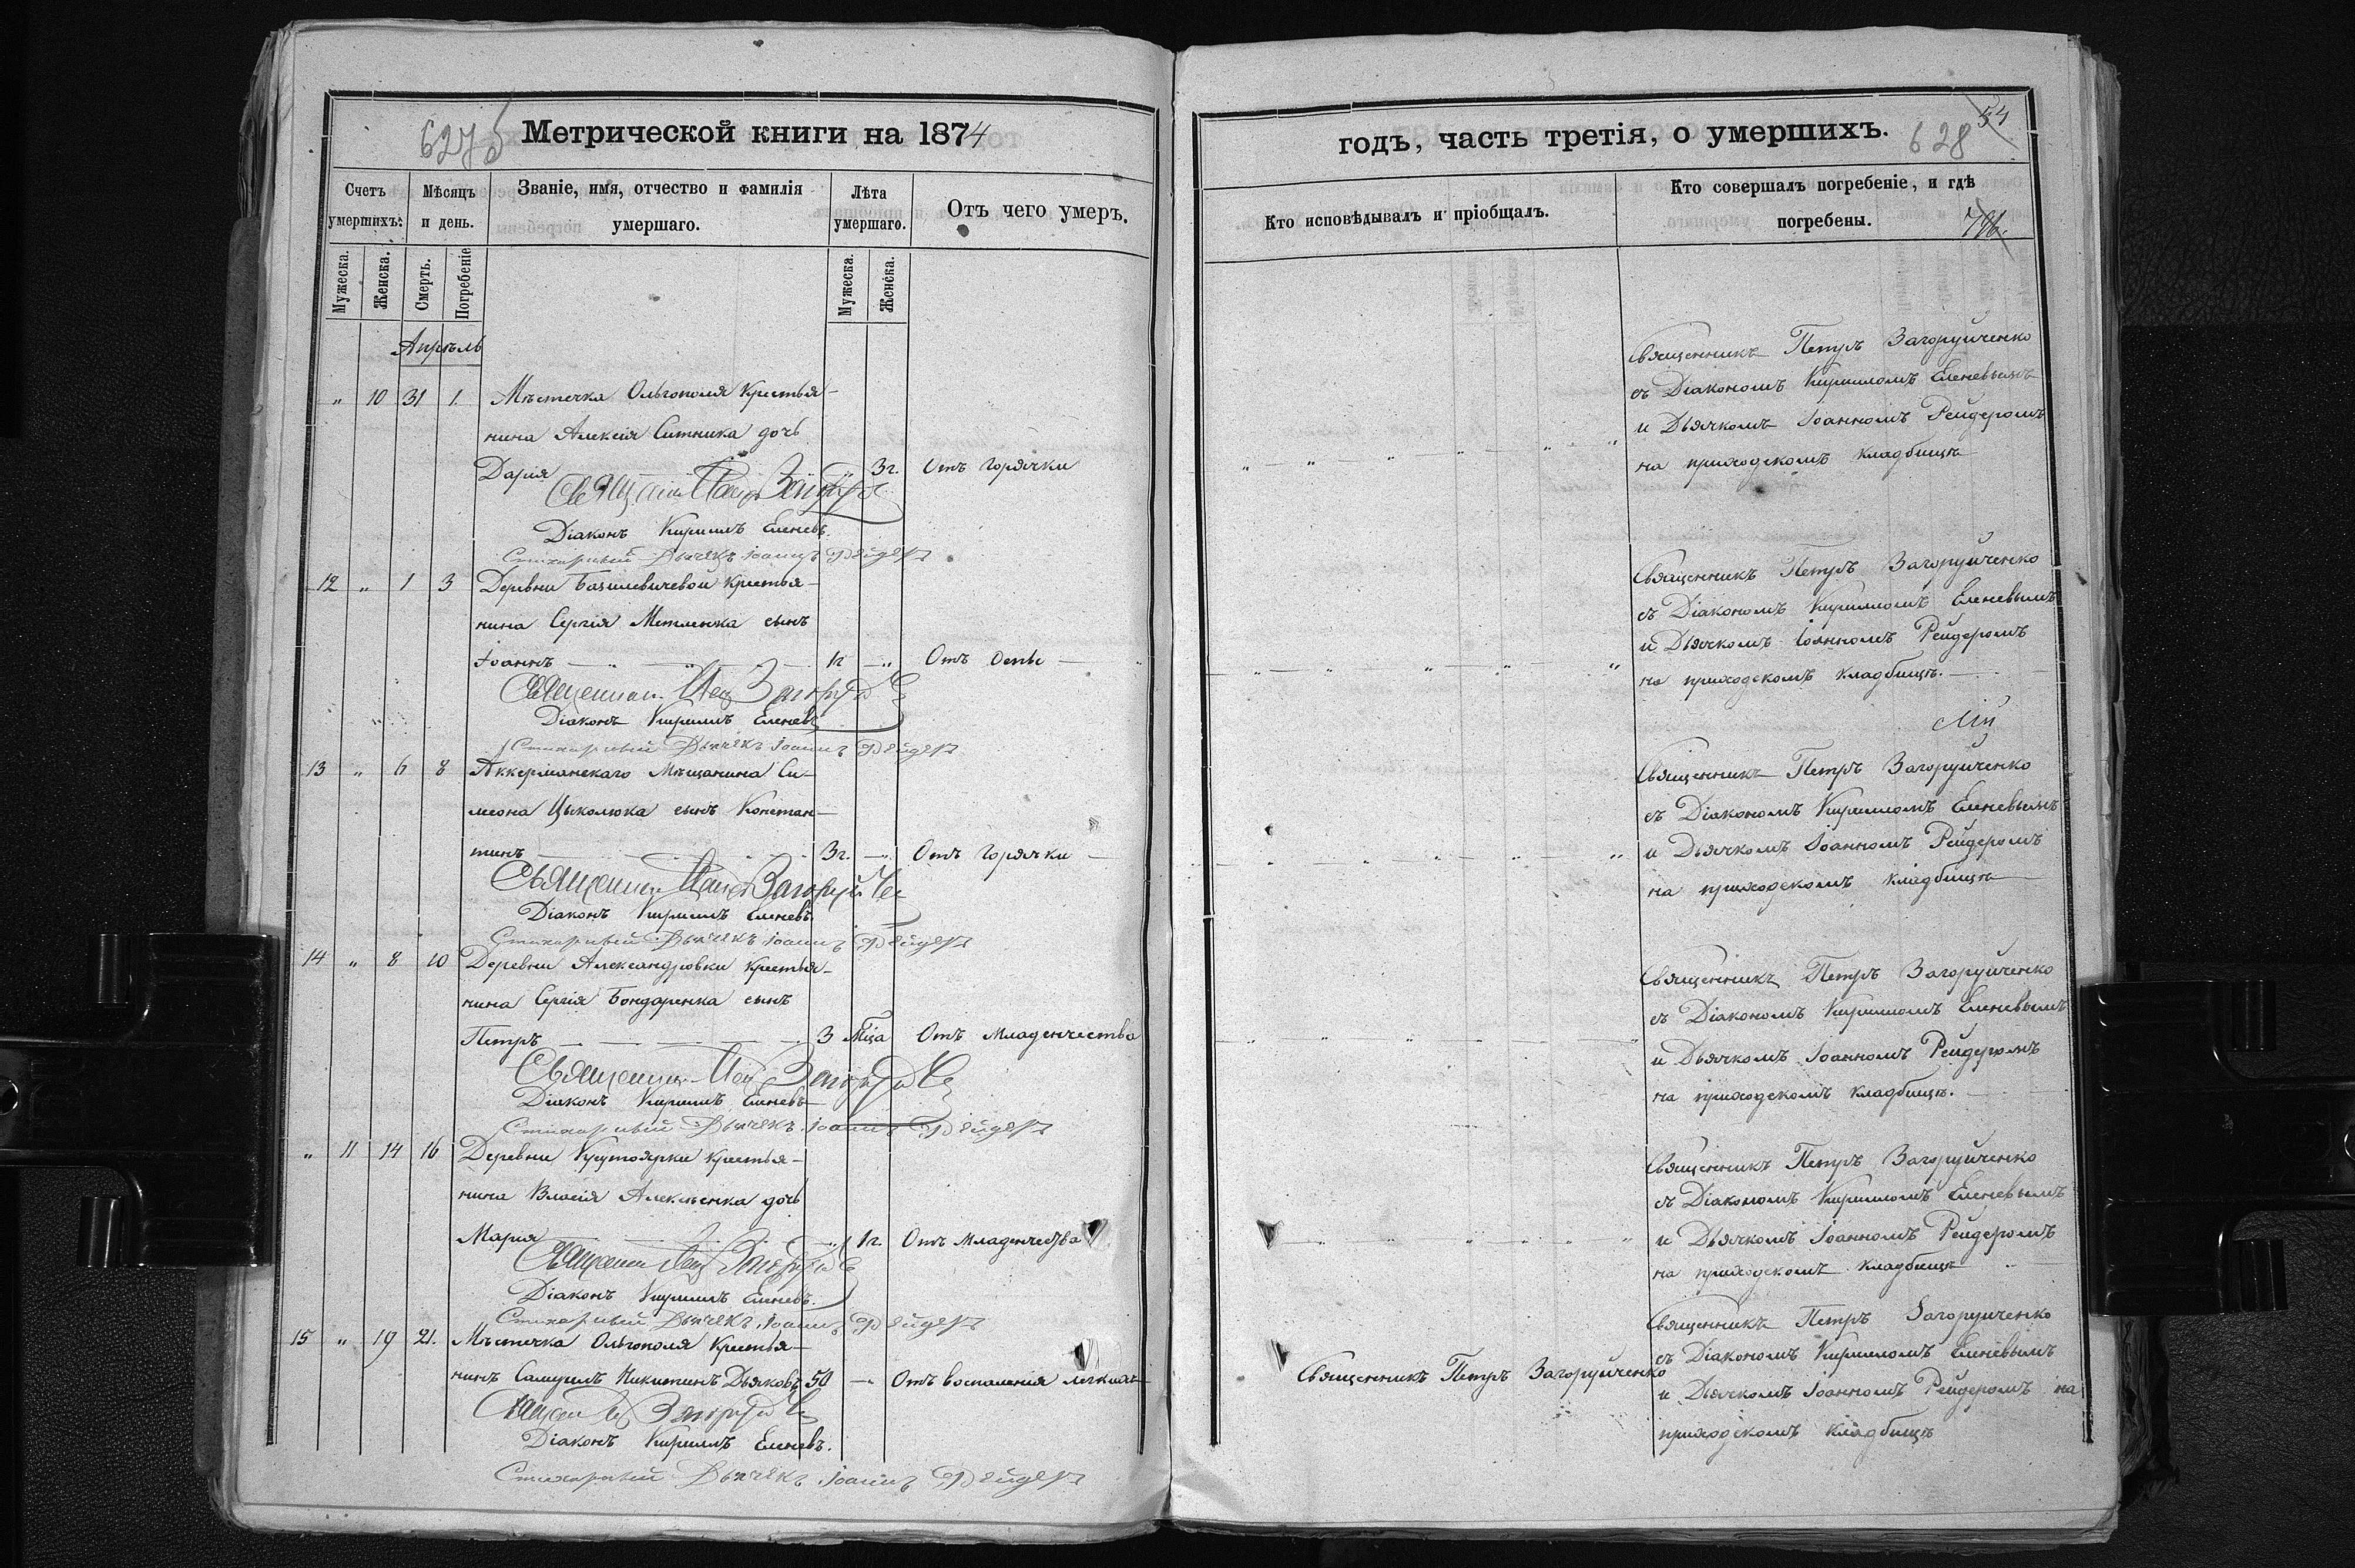 627об Метрической книги на 1874
Счетъ умершихъ.
Мѣсяцъ и день.
Званіе, имя, отчество и фамилія умершаго.
Лѣта умершаго.
Отъ чего умеръ.
Мужеска.
Женска.
Смерть.
Погребеніе
Мужеска.
Женска.
Апрѣль
" 10 31 1. Мѣстечка Ольгополя Крестья-
нина Алексія Ситника дочь
Дарія 3г. Отъ горячки
Діаконъ Кириллъ Еленевъ.
Стихарный Дьячекъ Іоаннъ Рейдеръ
12 " 1 3 Деревни Базилевичевой крестья-
нина Сергія Метленка сынъ
Іоаннъ 1г " Отъ Оспы
Діаконъ Кириллъ Еленевъ
Стихарный Дьячекъ Іоаннъ Рейдеръ
13 " 6 8 Аккерманскаго Мѣщанина Си-
меона Цыколюка сынъ Констан-
тинъ 3г. " Отъ горячки
Діаконъ Кириллъ Еленевъ
Стихарный Дьячекъ Іоаннъ Рейдеръ
14 " 8 10 Деревни Александровки крестья-
нина Сергія Бондаренка сынъ
Петръ 3 Мѣца Отъ младенчества
Діаконъ Кириллъ Еленевъ
Стихарный Дьячекъ Іоаннъ Рейдеръ
" 11 14 16 Деревни Крутоярки крестья-
нина Власія Алексѣенка дочь
Марія " 1г. Отъ младенчества
Діаконъ Кириллъ Еленевъ.
Стихарный Дьячекъ Іоаннъ Рейдеръ
15 " 19 21. Мѣстечка Ольгополя Крестья-
нинъ Самуилъ Никитинъ Дьяковъ 50 Отъ воспаленія легкихъ
Діаконъ Кириллъ Еленевъ.
Стихарный Дьячекъ Іоаннъ Рейдеръ
годъ, часть третія, о умершихъ. 628 54
Кто исповѣдывалъ и пріобщалъ.
Кто совершалъ погребеніе, и гдѣ погребены.
Священникъ Петръ Загоруйченко
съ Діакономъ Кирилломъ Еленевымъ
и Дьячкомъ Іоанномъ Рейдеромъ
на приходскомъ кладбищѣ
Священникъ Петръ Загоруйченко
съ Діакономъ Кирилломъ Еленевымъ
и Дьячкомъ Іоанномъ Рейдеромъ
на приходскомъ кладбищѣ.
Священникъ Петръ Загоруйченко
съ Діакономъ Кирилломъ Еленевымъ
и Дьячкомъ Іоанномъ Рейдеромъ
на приходскомъ кладбищѣ
Священникъ Петръ Загоруйченко
съ Діакономъ Кирилломъ Еленевымъ
и Дьячкомъ Іоанномъ Рейдеромъ
на приходскомъ кладбищѣ.
Священникъ Петръ Загоруйченко
съ Діакономъ Кирилломъ Еленевымъ
и Дьячкомъ Іоанномъ Рейдеромъ
на приходскомъ кладбищѣ
Священникъ Петръ Загоруйченко
Священникъ Петръ Загоруйченко
съ Діакономъ Кирилломъ Еленевымъ
и Дьячкомъ Іоанномъ Рейдеромъ на
приходскомъ кладбищѣ